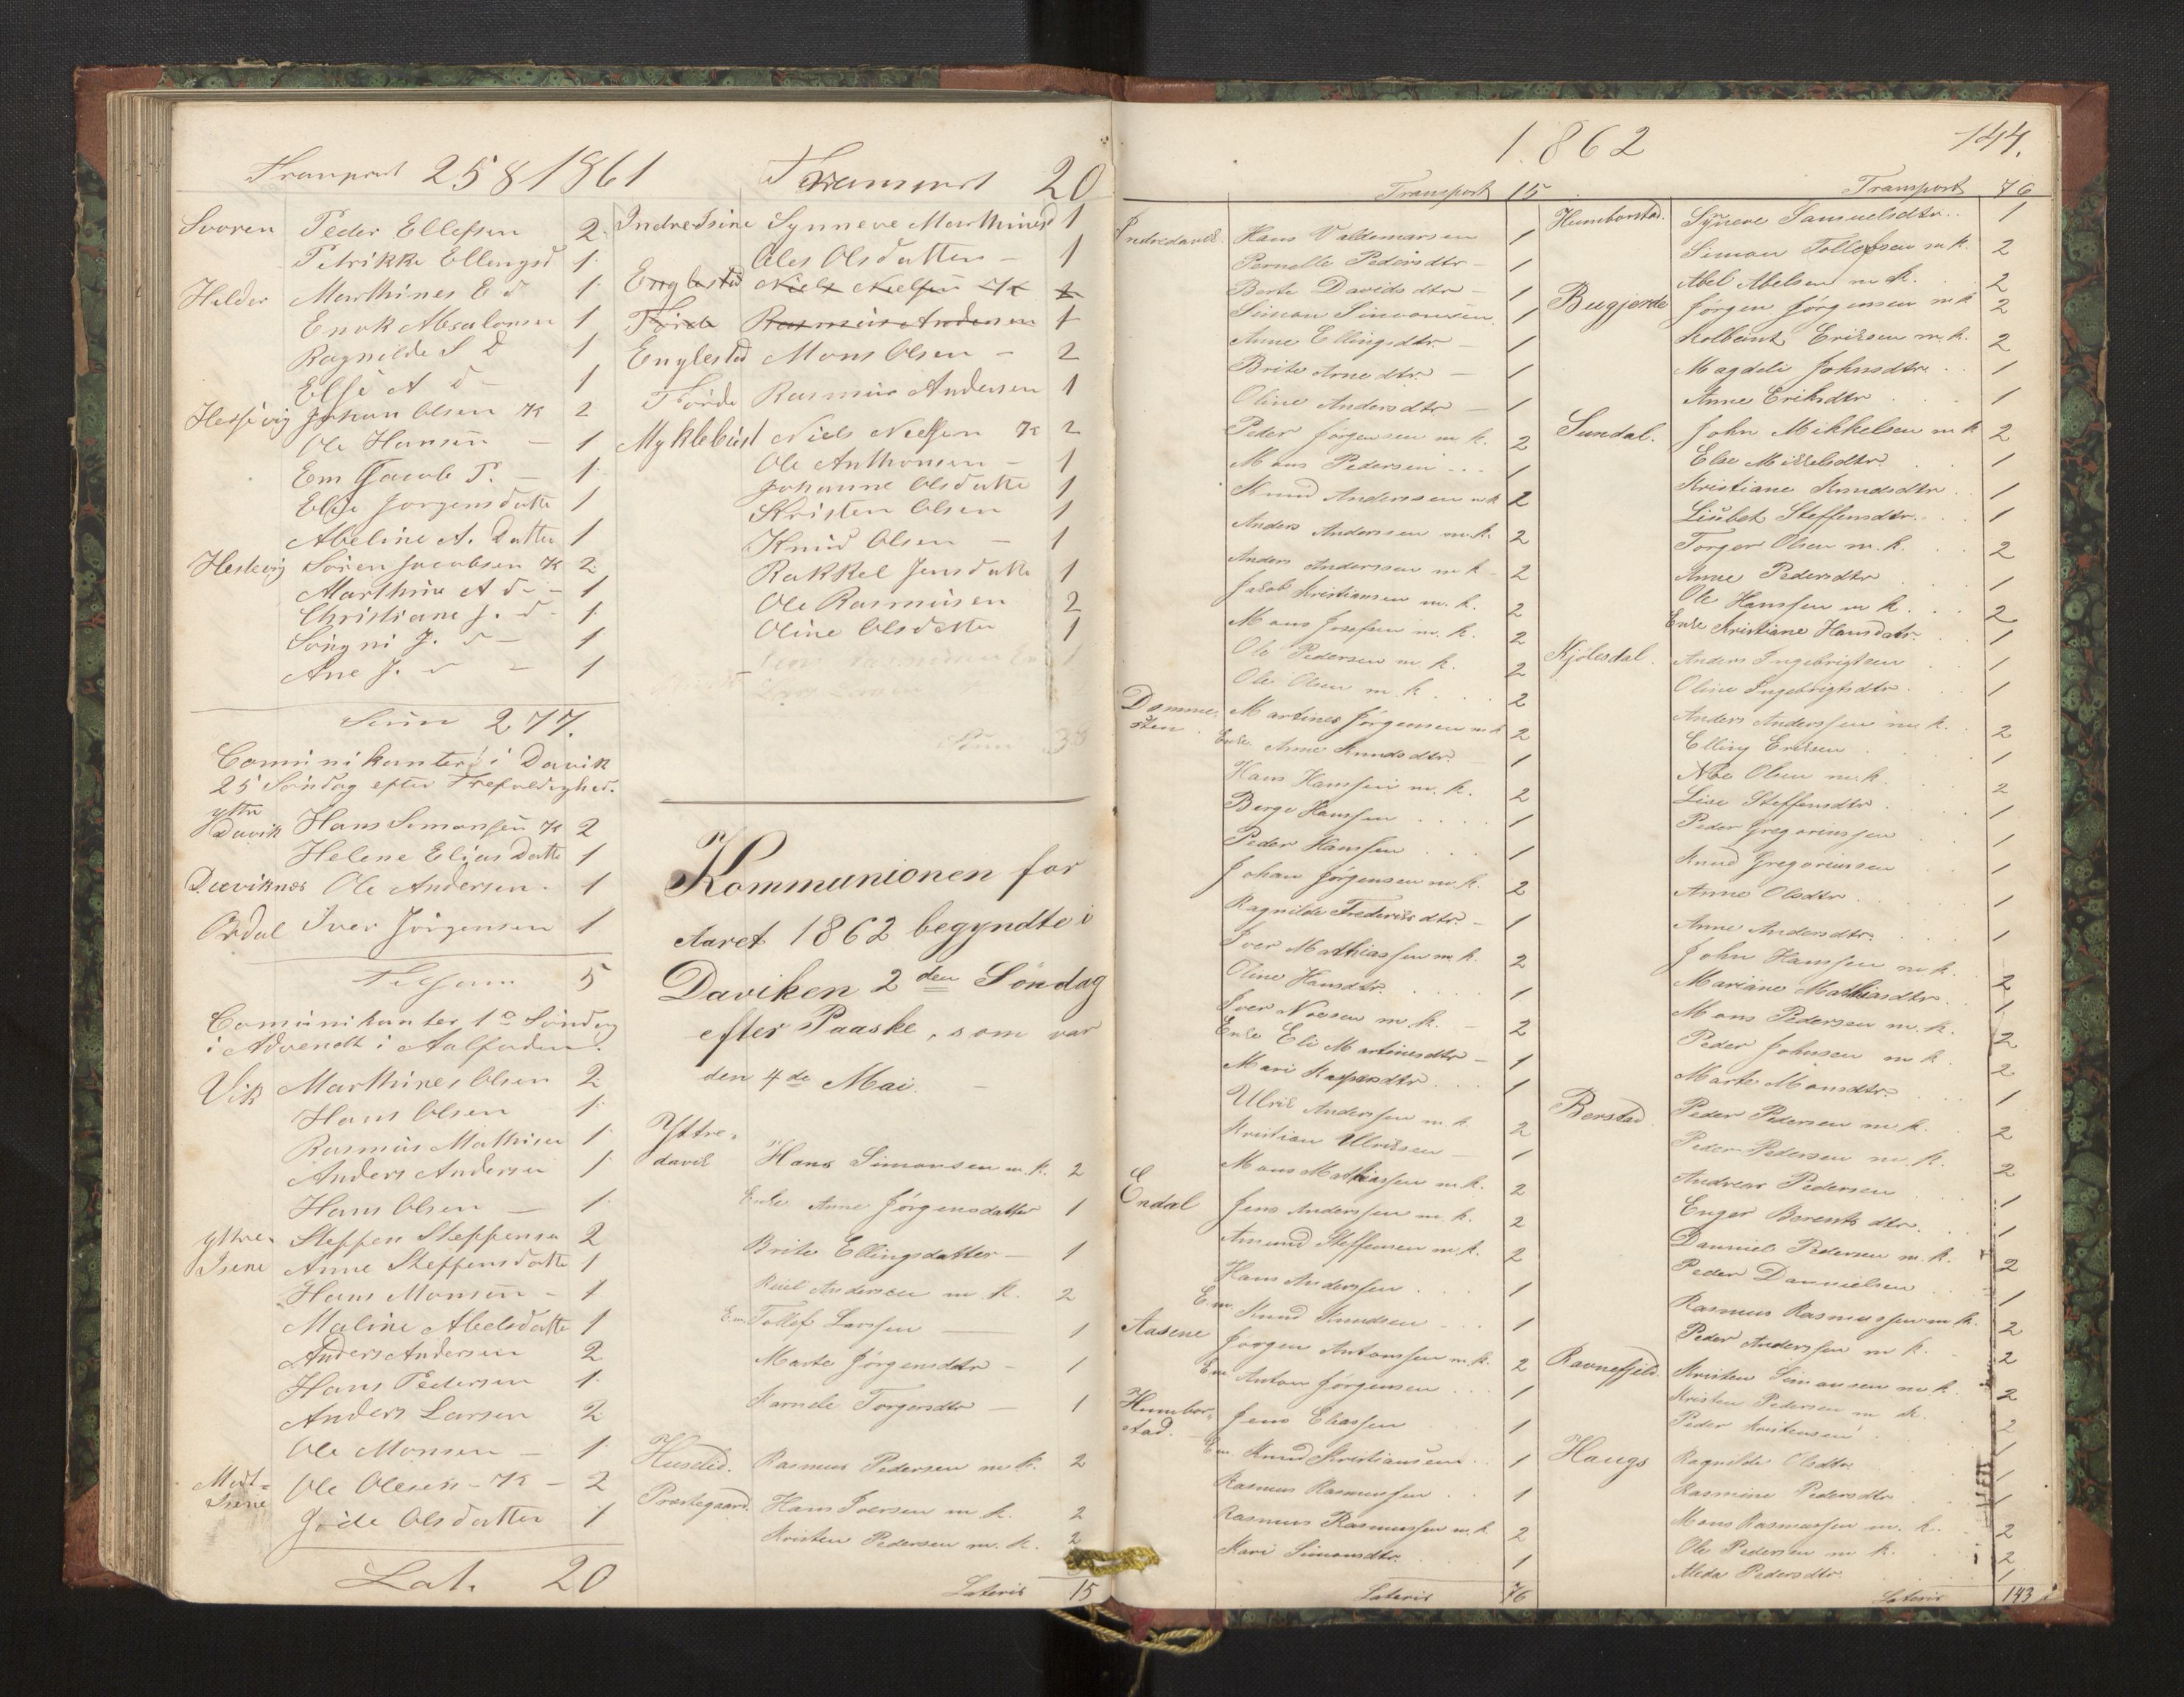 Transport 258 1861
Svoren Peder Ellefsen 2
Petrikke Ellengsd 1
Helder Marthines E d 1
Enok Absalonsen 1
Ragnilde S D 1
Else A d - 1
Johan Olsen K 2
Ole Hansen - 1
Em Jacob P. - 1
Else Jørgensdatte 1
Abeline A. Datter 1
Hestevig Sören Jacobsen K 2
Marthine A d - 1
Christiane J. d - 1
J. d - 1
Ane J. d - 1
Sum 277.
Comunikanter i Davik
25 Söndag efter Trefoldighed.
ytre
Davik Hans Simonsen K 2
Helene Elias Datte 1
Daviknes Ole Andersen - 1
Ordal Iver Jörgensen 1
Tilsam 5
Comunikanter 1e Söndag
i Advendt i Aalfoden.
Vik Marthines Olsen 2
Hans Olsen 1
Rasmus Mathisen 1
Anders Andersen 1
Hans Olsen - 1
ytre Steffen Steffensen 2
Isene Anne Steffensdatte 1
Hans Monsen - 1
Maline Abelsdatte 1
Anders Andersen 2
Hans Pedersen 1
Anders Larsen 2
Ole Monsen - 1
Mit-
Isene Ole Olesen - K - 2
Olsdatter 1
Lat. 20
Transport 20
Indre Isene Synneve Marthinesd 1
Ales Olsdatter - 1
Englested Niels Nielsen K 2
Förde Rasmus Andersen 1
Englested Mons Olsen - 2
Förde Rasmus Andersen 1
Myklebust Niels Nielsen K 2
Ole Anthonsen - 1
Johanne Olsdatte 1
Kristen Olsen 1
Knud Olsen - 1
Rakkel Jensdatte 1
Ole Rasmusen 2
Oline Olsdatter 1
Sum 38
Kommunionen for
Aaret 1862 begyndte i
Daviken 2den Söndag
efter Paaske, som var
den 4de Mai. -
Yttre-
davik Hans Simonsen m. k. 2
Enke Anne Jørgensdatter 1
Brite Ellingsdatter - 1
Andersen m. k. 2
E.m. Tollef Larssen - 1
Marte Jørgensdatr - 1
Torgersdtr - 1
Huselid. Rasmus Pedersen m. k. 2
Præstegaard. Hans Iversen m. k. 2
Kristen Pedersen m. k. 2
Lateris 15
1862
144.
Transport 15
Indredavik. Hans Valdemarsen 1
Pernelle Pedersdtr - 1
Berte Davidsdtr - 1
Simon Simonsen 1
Anne Ellingsdtr. - 1
Brite Arnedtr. - 1
Oline Andersdtr - 1
Peder Jørgensen m. k. 2
Mons Pedersen - - - 1
Knud Anderssen m k 2
Anders Anderssen m. k. 2
Anders Anderssen m k - 2
Jakob Kristiansen m. k. 2
Mons Josefsen m. k. 2
Ole Pedersen m. k. 2
Ole Olsen m. k. 2
Domme-
sten. Martines Jørgensen m k 2
Enke. Anne Knudsdtr. - 1
Hans Hanssen m. k. 2
Berge Hanssen 1
Peder Hanssen 1
Johan Jørgensen m. k. 2
Ragnilde Frederiksdtr. - 1
Iver Mathiassen m. k. 2
Oline Hansdtr. 1
Iver Noesen m. k. - 2
Enke Eli Martinesdtr - 1
Mari Kaspersdtr. 1
Ulrik Anderssen m. k. 2
Kristian Ulriksen - 1
Mons Mathiassen m. k. 2
Endal Jens Anderssen m. k. 2
Amund Steffensen m. k. 2
Hans Anderssen 1
E.m. Knud Knudsen 1
Aasene Jørgen Antonssen m. k. 2
E.m. Anton Jørgensen 1
Humbor-
stad. Jens Eliassen 1
E.m. Knud Kristiansen 1
Rasmus Rasmussen 1
Rasmus Rasmussen m. k. 2
Kari Simonsdtr. 1
Lateris 76
Transport 76
Humborstad. Synneve Samuelsdtr. 1
Simon Tollefsen m k. 2
Abel Abelsen m. k. 2
Bugjerde Jørgen Jørgensen m k 2
Kolbeint Eriksen m. k. 2
Magdele Johnsdtr. 1
Anne Eriksdtr 1
Sundal. John Mikkelsen m k 2
Else Mikkelsdtr. 1
Kristiane Knudsdtr. 1
Lisebet Steffensdtr. 1
Torger Olsen m. k. 2
Anne Pedersdtr 1
Ole Hanssen m k. 2
Enke Kristiane Hansdatr. 1
Kjølesdal. Anders Ingebrigtsen 1
Oline Ingebrigtsdtr. 1
Anders Anderssen m. k. 2
Elling Eriksen 1
Noe Olsen m. k. 2
Lise Steffensdtr. 1
Peder Gregoriussen 1
Knud Gregoriussen 1
Anne Olsdtr. 1
Anne Andersdtr. 1
John Hanssen m k. 2
Mariane Mathiasdtr. 1
Mons Pedersen m. k. 2
Peder Johnsen m k. 2
Marte Monsdtr. 1
Borstad Peder Pedersen m. k. 2
Peder Pedersen m. k. 2
Andreas Pedersen 1
Enger Berentsdtr. 1
Danniel Pedersen m. k. 2
Peder Dannielsen 1
Rasmus Rasmussen m k. 2
Peder Anderssen m k. 2
Ravnefjeld. Kristen Simonsen m k. 2
Kristen Pedersen m k. 2
Peder Kristensen 1
Haugs Ragnilde Olsdtr. 1
Rasmine Pedersdtr 1
Mons Rasmussen m. k. 2
Ole Pedersen m k. 2
Pedersdtr. 1
Lateris 143